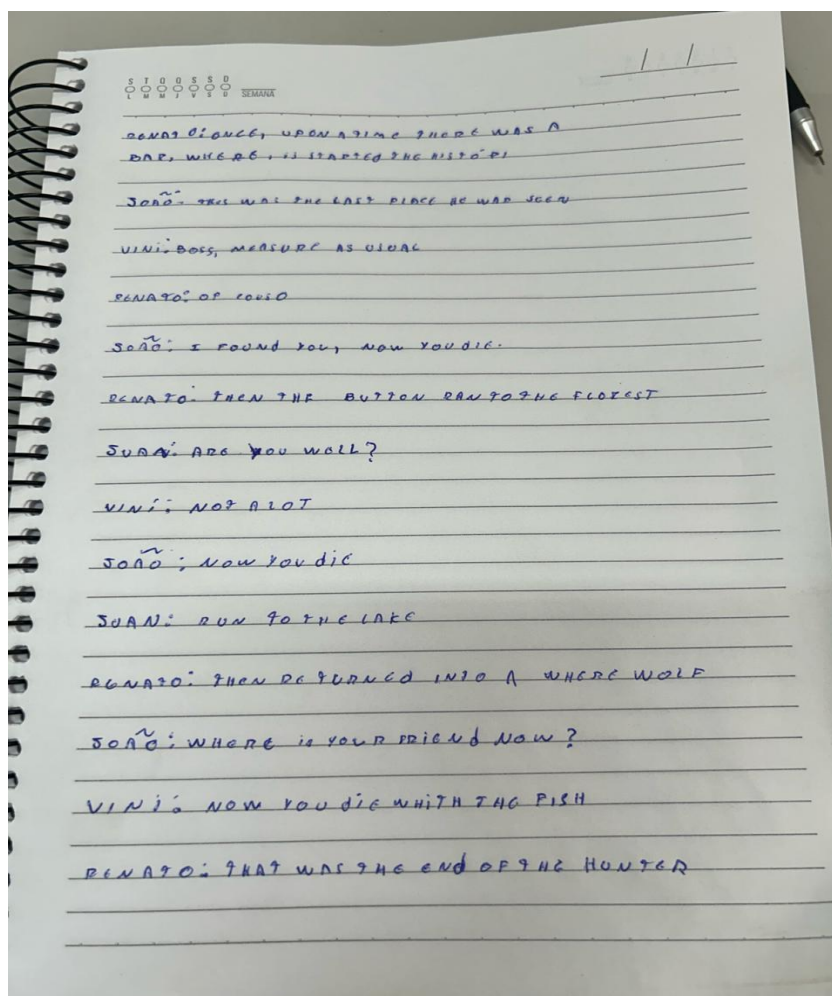 S T Q Q S S D
L M M J V S D
SEMANA
/ /
RENATO: ONCE, UPON A TIME THERE WAS A
BAR, WHERE, IS STARTED THE HISTÓRI
JOÃO: THIS WAS THE LAST PLACE HE WAS SEEN
VINI: BOSS, MEASURE AS USUAL
RENATO: OF COUSO
JOÃO: I FOUND YOU, NOW YOU DIE.
RENATO: THEN THE BUTTON RAN TO THE FLOREST
JUAN: ARE YOU WELL?
VINI: NOT A LOT
JOÃO: NOW YOU DIE
JUAN: RUN TO THE LAKE
RENATO: THEN RETURNED INTO A WHERE WOLF
JOÃO: WHERE IS YOUR FRIEND NOW?
VINI: NOW YOU DIE WHITH THE FISH
RENATO: THAT WAS THE END OF THE HUNTER